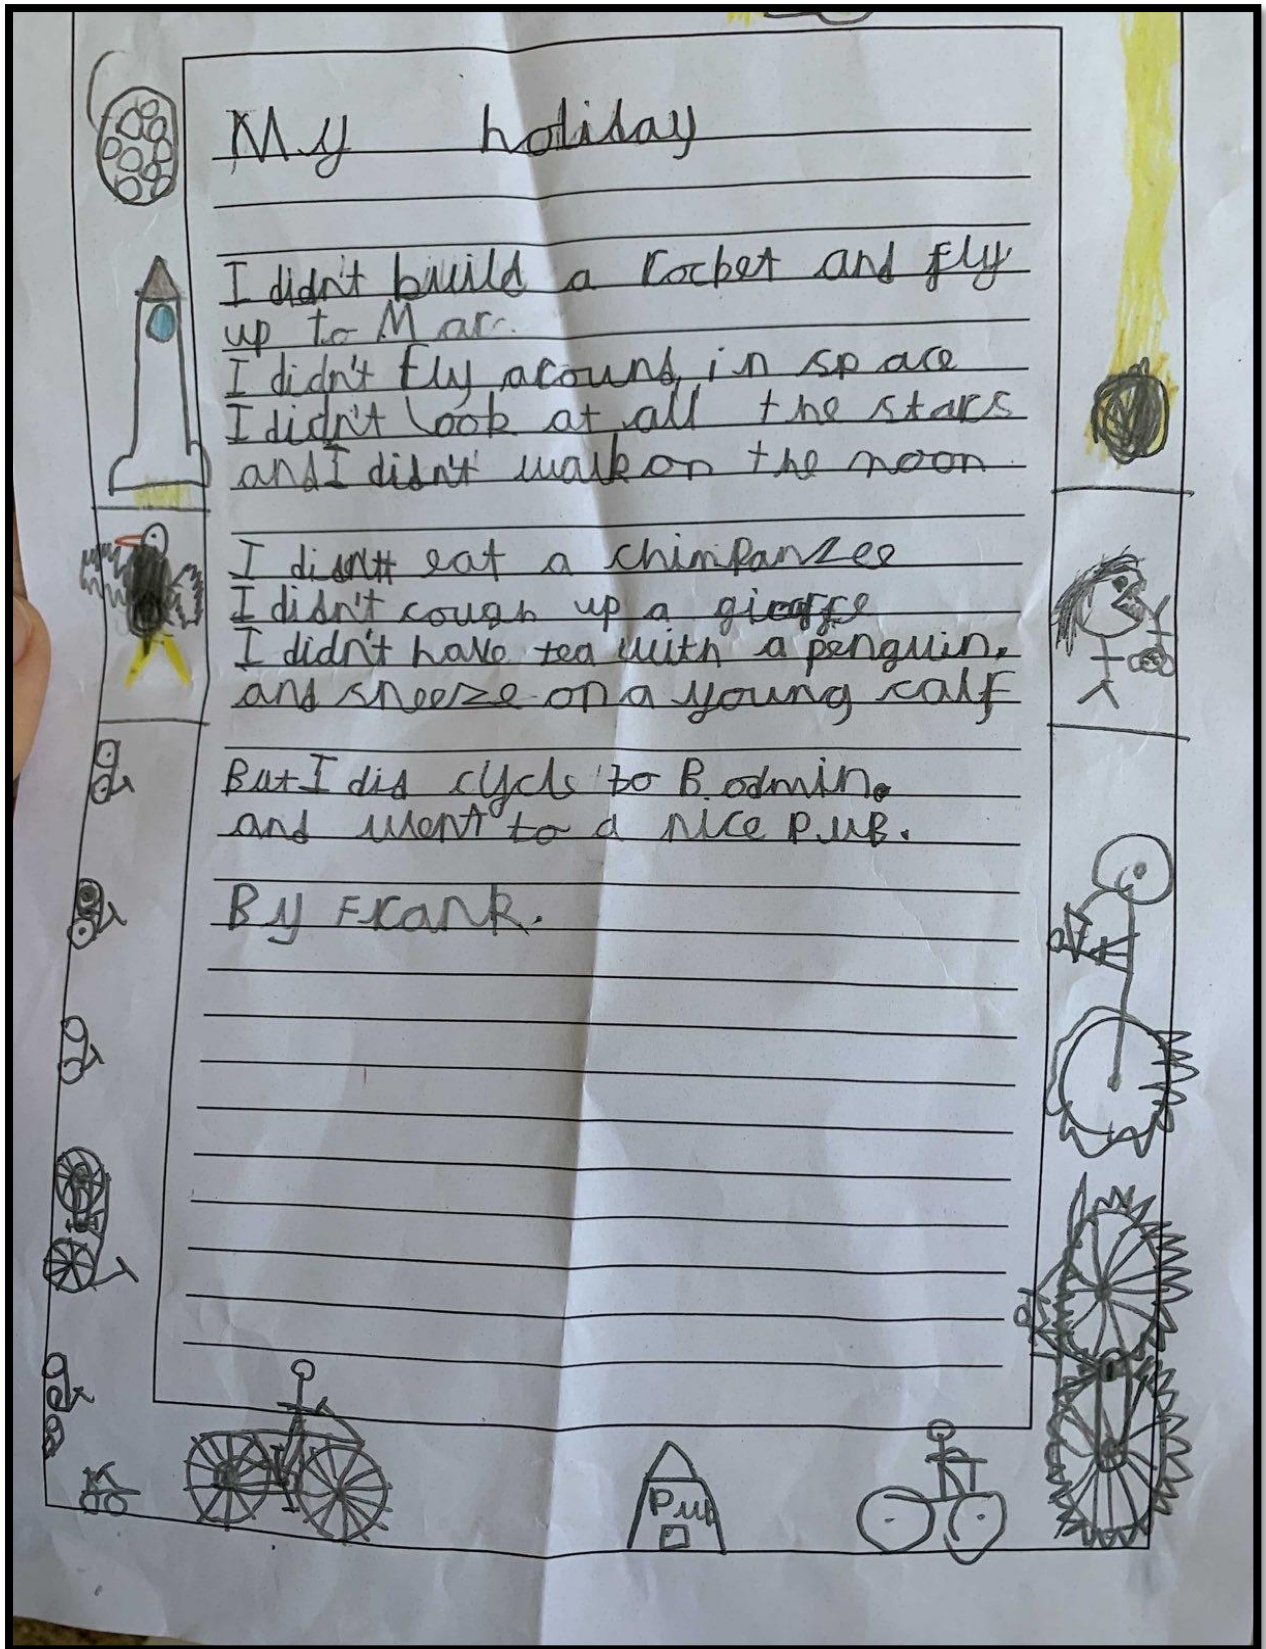 My holiday
I didn't build a rocket and fly
up to Mars.
I didn't fly around in space
I didn't look at all the stars
and I didn't walk on the moon
I didn't eat a chimpanzee
I didn't cough up a giraffe
I didn't have tea with a penguin.
and sneeze on a young calf
But I did cycle to Bodmin.
and went to a nice PUB.
By Frank.
Pub